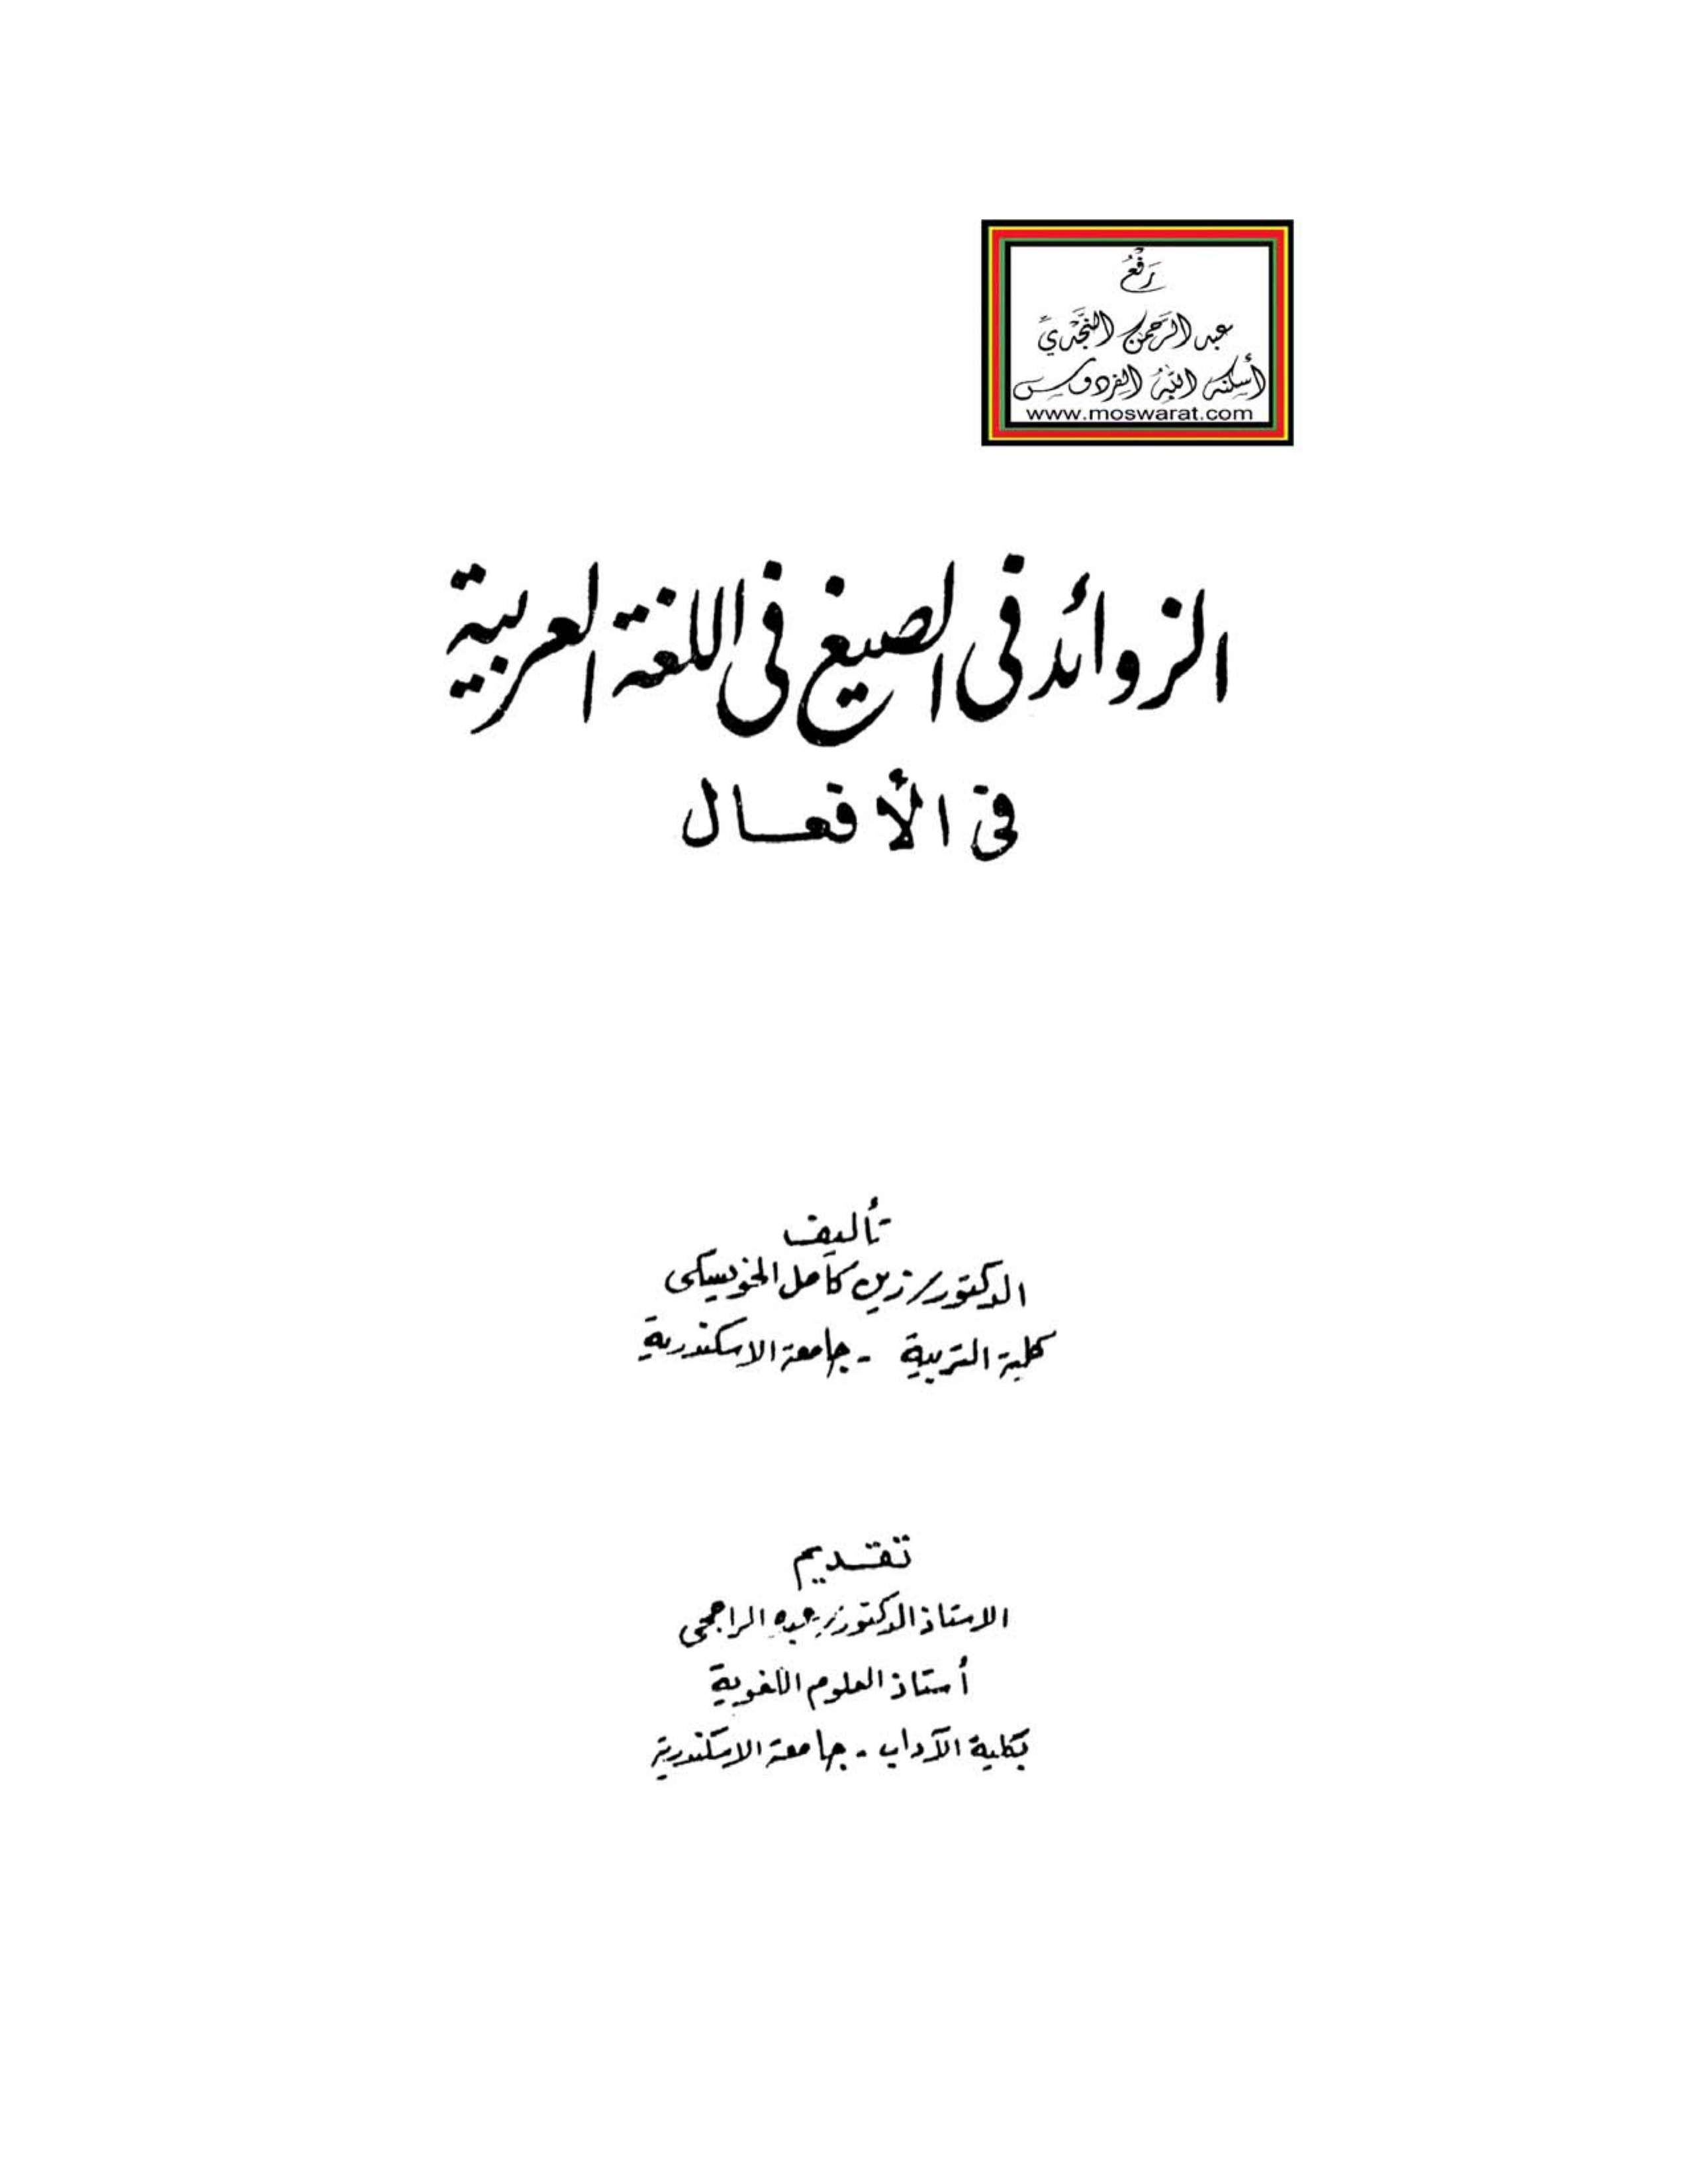 رَفْعُ
عبد الرَّحمن النَّجْديِّ
أسكنه اللهُ الفردوس
www.moswarat.com
الزوائد فى الصيغ فى اللغة العربية
فى الأفعـال
تأليف
الدكتور/ زين كامل الخويسكى
كلية التربية - جامعة الاسكندرية
تقـديم
الاستاذ الدكتور/ عبده الراجحى
أستاذ العلوم اللغوية
بكلية الآداب - جامعة الاسكندرية